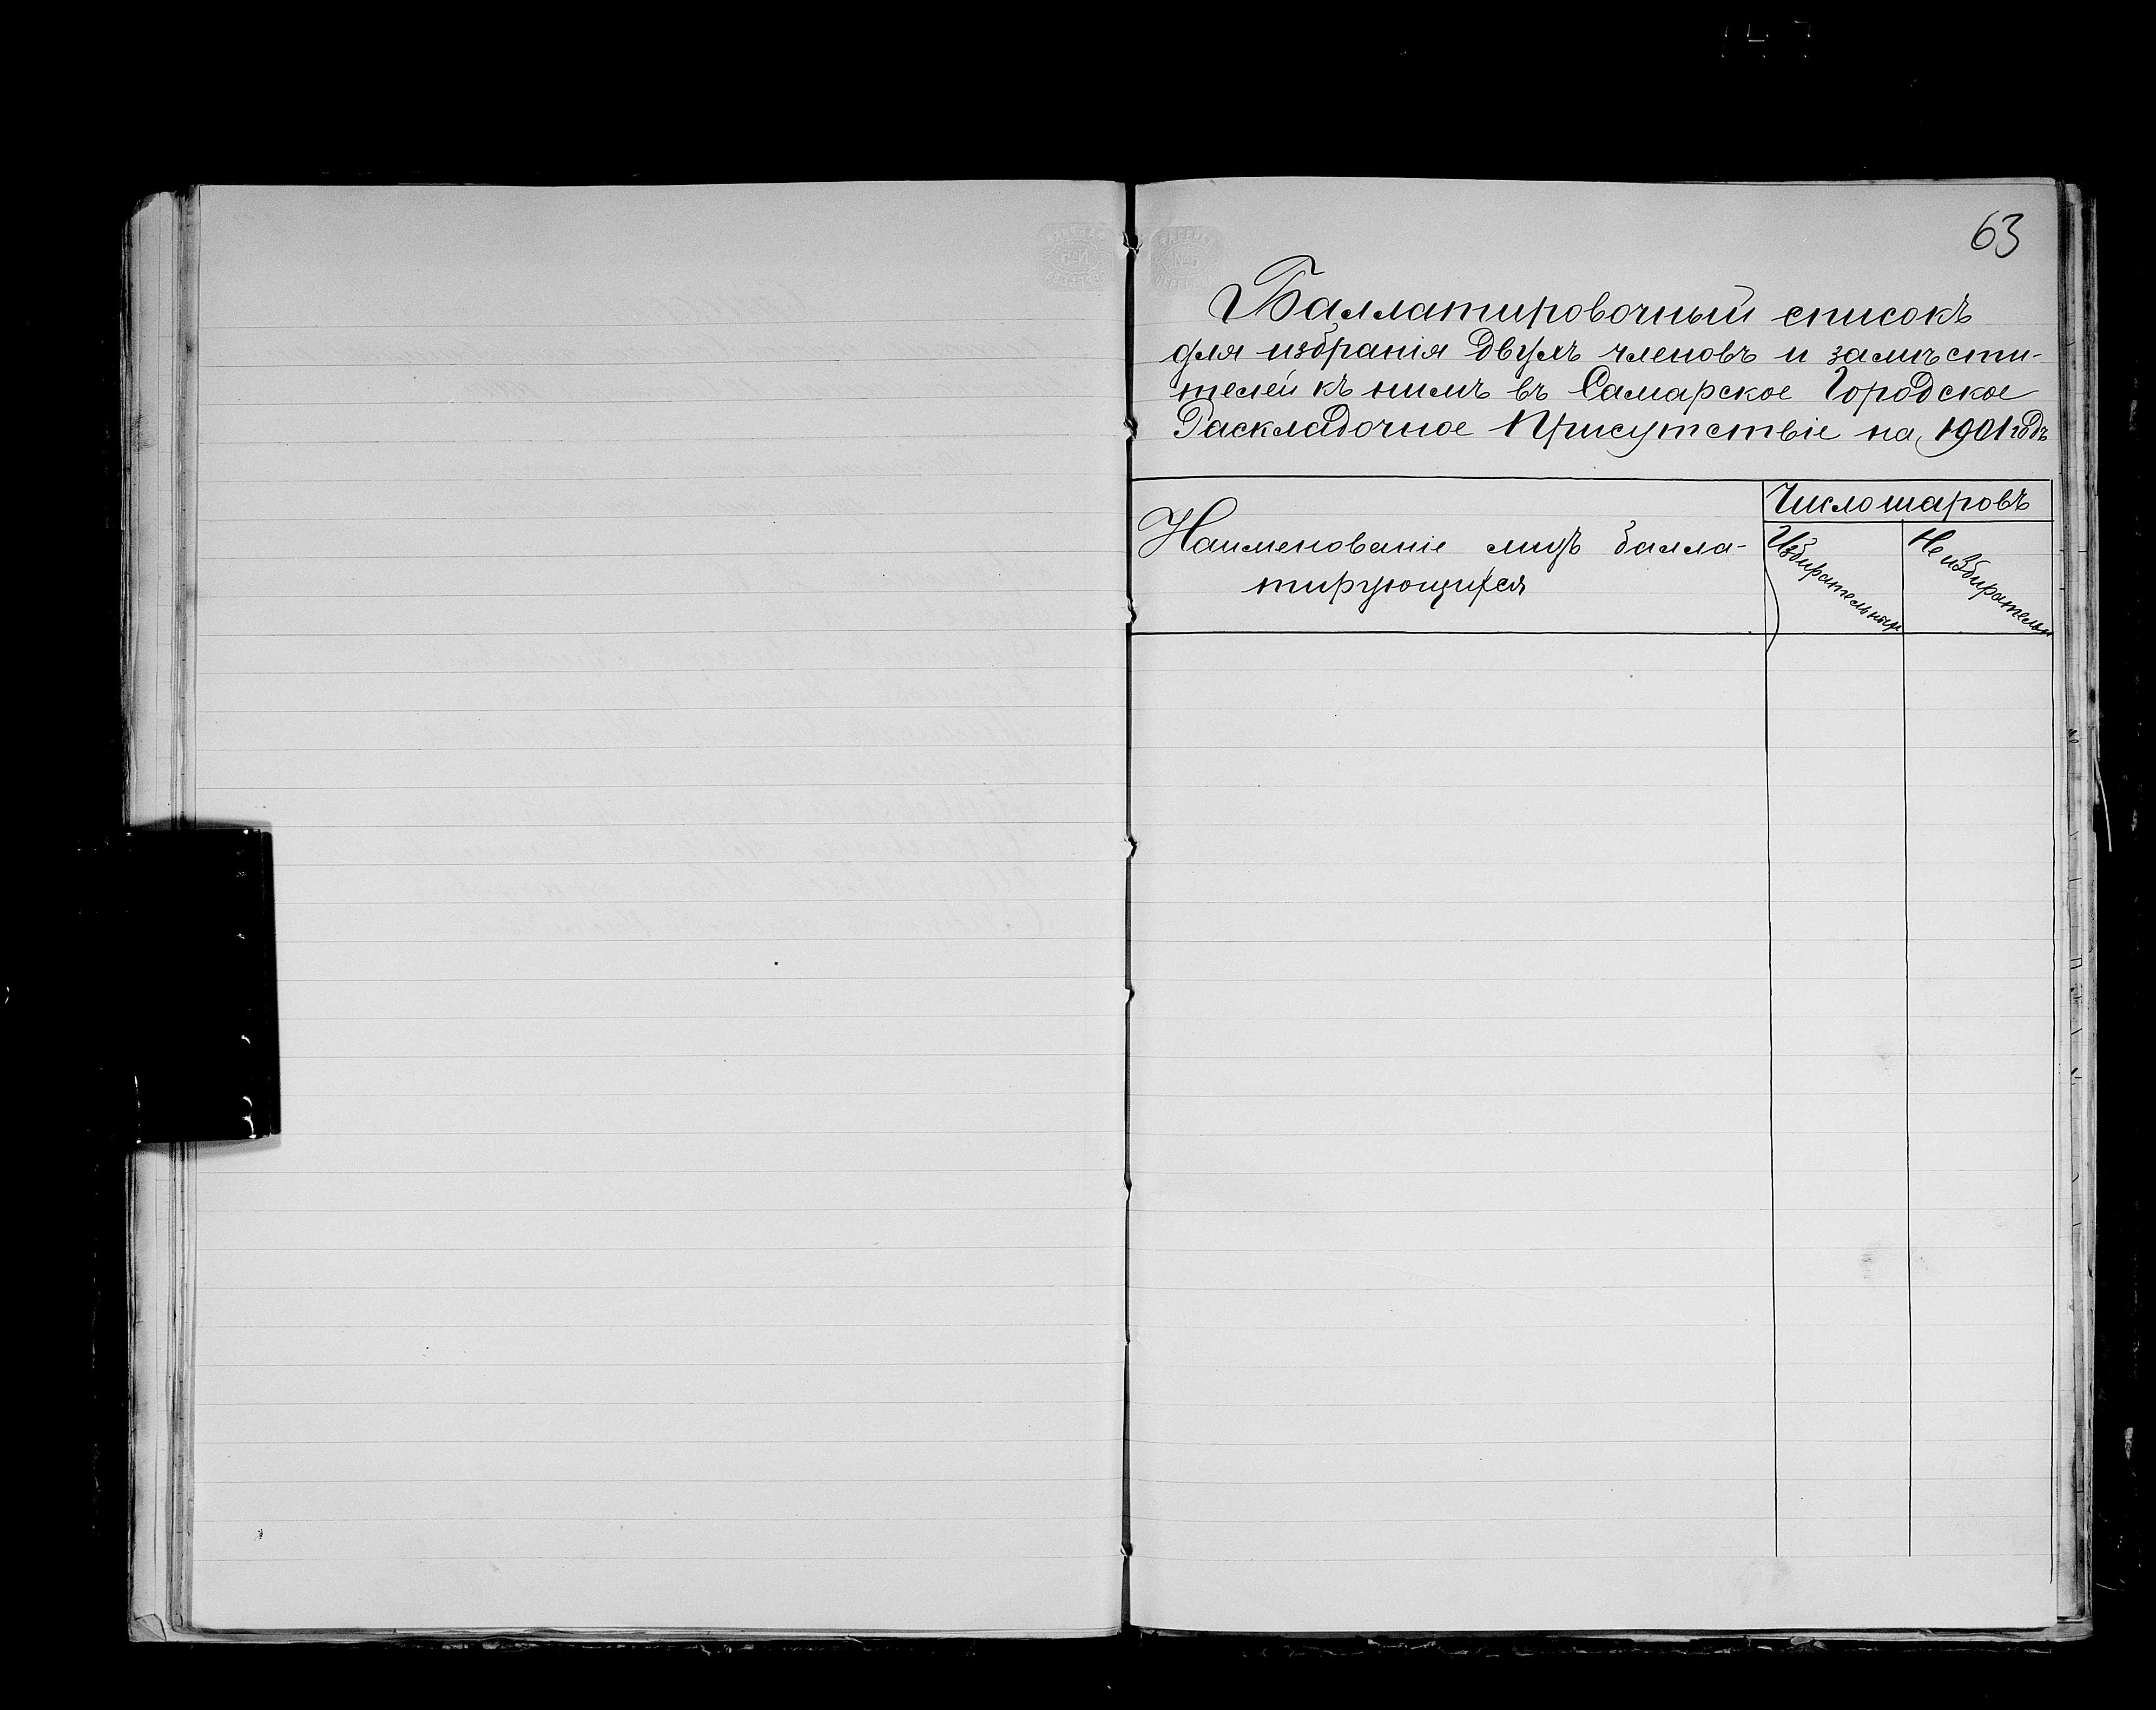 63
Баллатировочный списокъ
для избранія двухъ членовъ и замѣсти-
телей къ нимъ въ Самарское Городское
Раскладочное Присутствіе на 1901 годъ
Число шаровъ
Наименованіе лицъ балла-
тирующихся
Избирательныхъ
Не избирательн